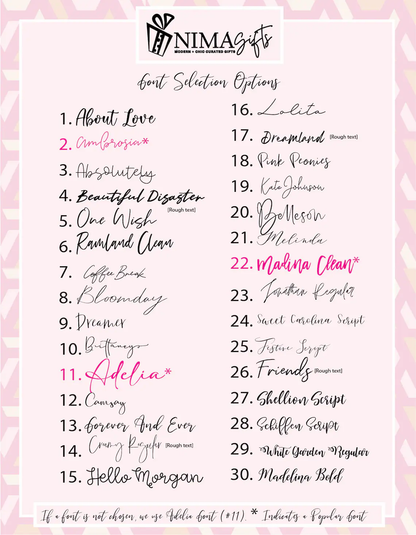 NIMAGifts
MODERN + CHIC CURATED GIFTS
Font Selection Options
1. About Love
2. Ambrosia*
3. Absolutely
4. Beautiful Disaster
[Rough text]
5. One Wish
6. Ramland Clean
7. Coffee Break
8. Bloomday
9. Dreamer
10. Brittaneys
11. Adelia*
12. Camsay
13. Forever And Ever
14. Regular [Rough text]
15. Hello Morgan
16. Lolita
17. Dreamland [Rough text]
18. Pink Peonies
19. Kate Johnson
20. Belleson
21. Melinda
22. Madina Clean*
23. Jonathan Regular
24. Sweet Carolina Script
25. Script
26. Friends [Rough text]
27. Shellion Script
28. Schiffen Script
29. White Garden Regular
30. Madelina Bold
If a font is not chosen, we use Adelia font (#11). * Indicates a Popular Font